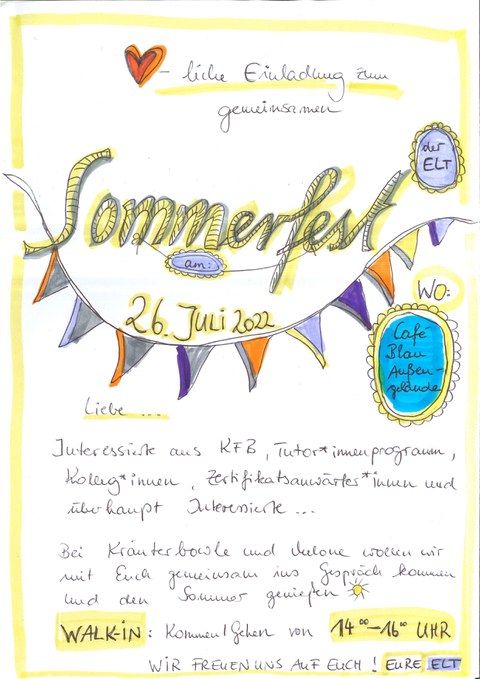 - liche Einladung zum
gemeinsamen
der
ELT
Sommerfest
am:
26. Juli 2022
WO:
Café
Blau
Außen-
gelände
Liebe ...
Interessierte aus KFB, Tutor*innenprogramm,
Kolleg*innen, Zertifikatsanwärter*innen und
überhaupt Interessierte ...
Bei Kräuterbowle und Melone wollen wir
mit Euch gemeinsam ins Gespräch kommen
und den Sommer genießen
WALK-IN: Kommen/Gehen von 14⁰⁰-16⁰⁰ UHR
WIR FREUEN UNS AUF EUCH! EURE ELT